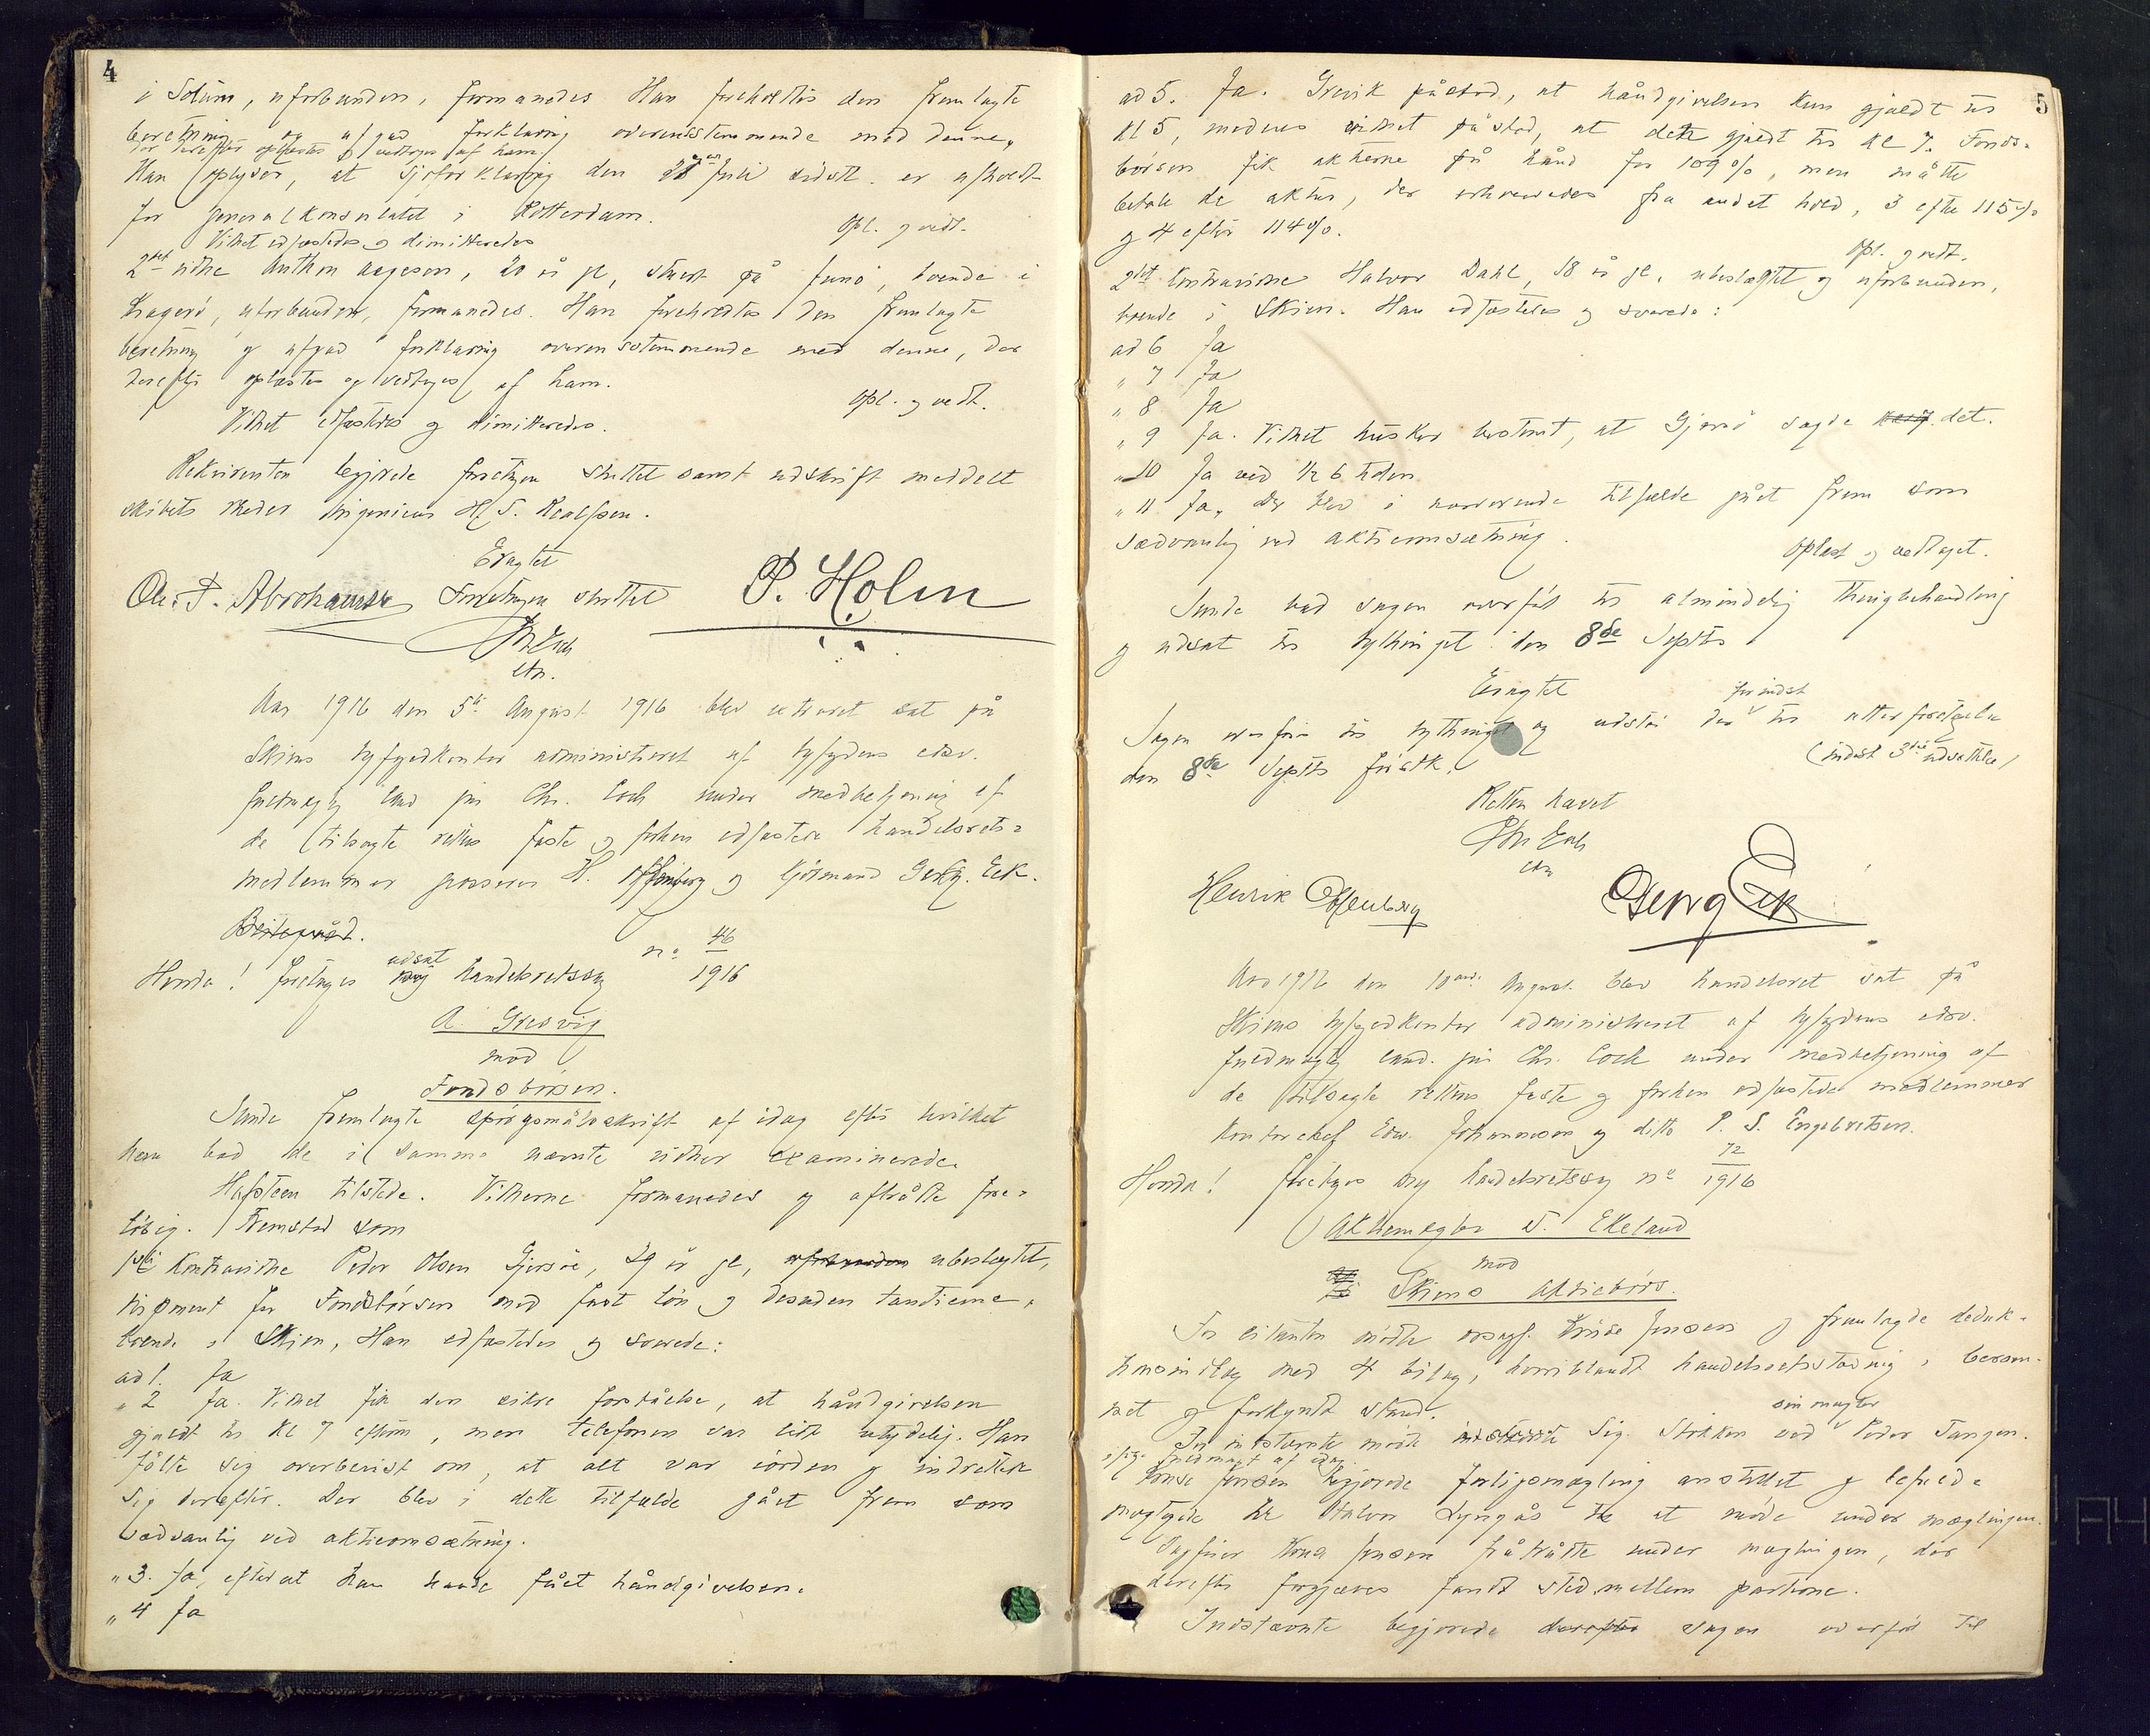 4
i Solum, uforbunden, formanedes. Han foreholdtes den fremlagte
beretning og afgav forklaring overensstemmende med denne,
der derefter oplæstes og vedtoges af ham.
Han oplyser, at sjøforklaring den Juli sidstl. er afholdt
for generalkonsulatet i Rotterdam.
Opl. og vedt.
Vidnet edfæstedes og dimitteredes
2det vidne Anthon Aagesen, 20 år gl, stuert på Juno, boende i
Kragerø, uforbunden, formanedes. Han foreholdtes den fremlagte
beretning og afgav forklaring overensstemmende med denne, der
derefter oplæstes og vedtoges af ham.
Opl. og vedt.
Vidnet edfæstedes og dimitteredes.
Rekvirenten begjærede forretningen sluttet samt udskrift meddelt
skibets reder ingeniør H. S. Realfsen.
Eragtet
Chr. P. Abrahamsen Forretningen sluttet P. Holm
Chr Coch
ctr.
Aar 1916 den 5te August 1916 blev extraret sat på
Skiens byfogedkontor administreret af byfogdens edsv.
fuldmægtig cand jur Chr. Coch under medbetjening af
de tilsagte rettens faste og forhen edfæstede handelsrets-
medlemmer grosserer H. Offenberg og kjøbmand Georg Eek.
Hvorda! foretages udsat handelsretssag no 46/1916
A. Gresvig
mod
Fondsbørsen.
Sunde fremlagte spørgsmålsskrift af idag efter hvilket
han bad de i samme nævnte vidner examinerede.
Hafsteen tilstede. Vidnerne formanedes og aftrådte fore-
løbig. Fremstod som
1ste Kontravidne Peder Olsen Gjersøe, 29 år gl, uforbunden ubeslægtet,
disponent for Fondsbørsen med fast løn og desuden tantieme,
boende i Skien, Han edfæstedes og svarede:
ad 1. Ja
" 2 Ja. Vidnet fik den sikre forståelse, at håndgivelsen
gjaldt til Kl 7 efterm, men telefonen var lidt utydelig. Han
følte sig overbevist om, at alt var iorden og indrettede
sig derefter. Der blev i dette tilfælde gået frem som
sædvanlig ved aktieomsætning.
" 3. Ja, efter at han havde fået håndgivelsen.
" 4 Ja
5
ad 5. Ja. Gresvik påstod, at håndgivelsen kun gjaldt til
Kl 5, medens vidnet påstod, at dette gjaldt til Kl 7. Fonds-
børsen fik aktierne på hånd for 109 %, men måtte
betale de aktier, der erhvervedes fra andet hold, 3 efter 115 %
og 4 efter 114 %.
Opl. og vedt.
2det Kontravidne Halvor Dahl, 18 år gl. ubeslægtet og uforbunden,
boende i Skien. Han edfæstedes og svarede:
ad 6 Ja
" 7 Ja
" 8 Ja
" 9 Ja. Vidnet husker bestemt, at Gjersø sagde det.
" 10 Ja ved ½ 6 tiden
" 11 Ja, der blev i nærværende tilfælde gået frem som
sædvanlig ved aktieomsætning.
Oplæst og vedtaget.
Sunde bad sagen overført til almindelig thingbehandling
og udsat til bythinget den 8de Septbr
Eragtet
Sagen overføres til bythinget og udstår der forindst til atter foretagelse
den 8de Septbr førstk.
(indst 3die udsættelse)
Retten hævet
Chr Coch
ctr
Henrik Offenberg Georg Eek
Aar 1916 den 10de August blev handelsret sat på
Skiens byfogedkontor administreret af byfogdens edsv.
fuldmægtig cand. jur Chr. Coch under medbetjening af
de tilsagte rettens faste og forhen edfæstede medlemmer
kontorchef Edw. Johannesen og ditto P. S. Engebretsen.
Hvorda! foretages ny handelsretssag no 72/1916
Aktiemægler W. Ekeland
mod
Skiens Aktiebørs.
For citanten mødte orsagf. Kruse Jensen og fremlagde deduk-
tionsindlæg med 4 bilag, hvoriblandt handelsretsstævning i beram-
met og forkyndt stand.
For indstævnte mødte Sig. Stokken ved sin mægler Peder Tangen.
ifølge fuldmagt af idag
Kruse Jensen begjærede forligsmægling anstillet og befuld-
mægtigede hr Halvor Lyngås til at møde under mæglingen.
Sagfører Kruse Jensen fratrådte under mæglingen, der
derefter forgjæves fandt sted mellem parterne.
Indstævnte begjærede derefter sagen overført til